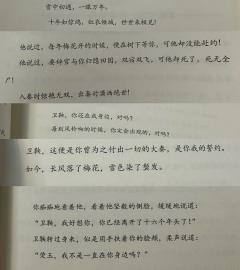 雪中初遇，一眼万年。
十年如惊鸿，红衣倾城，妙世来相见！
他说过，每年梅花开的时候，便在树下等你，可他却没能赴约！
他说过，要辞官与你归隐田园，双宿双飞，可他却死了。死无全
尸！
入秦时惊艳无双，出秦时潇洒绝世！
卫鞅，你还在我身边，对吗？
每到风铃响的时候，你定会出现的，对吗？
卫鞅，这便是你曾为之付出一切的大秦，是你我的誓约。
如今，长风落了梅花，雪色染了鬓发。
你痴痴地看着他，看着他坚毅的侧脸，缓缓地说道：
“卫鞅，我好想你，你已经离开了十六个年头了！”
卫鞅转过身来，似是用手扶着你的脸颊，柔声说道：
“荧玉，我不是一直在你身边吗？”